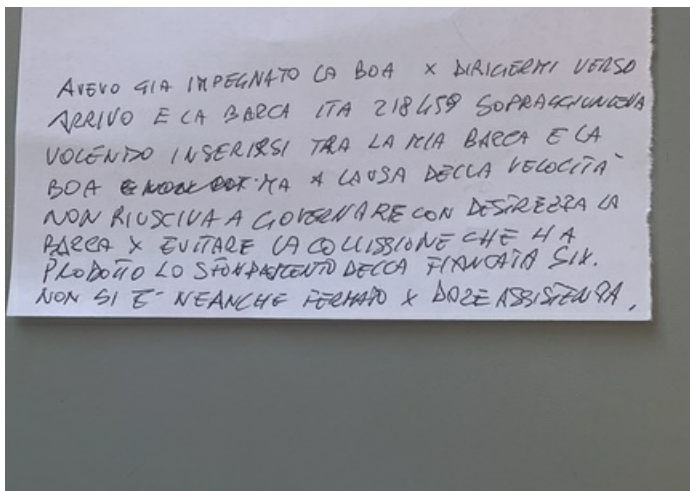 AVEVO GIA IMPEGNATO LA BOA X DIRIGERMI VERSO
ARRIVO E LA BARCA ITA 218459 SOPRAGGIUNGEVA
VOLENDO INSERIRSI TRA LA MIA BARCA E LA
BOA MA A CAUSA DELLA VELOCITA'
NON RIUSCIVA A GOVERNARE CON DESTREZZA LA
BARCA X EVITARE LA COLLISSIONE CHE HA
PRODOTTO LO SFONDAMENTO DELLA FIANCATA SIX.
NON SI E' NEANCHE FERMATO X DARE ASSISTENZA.